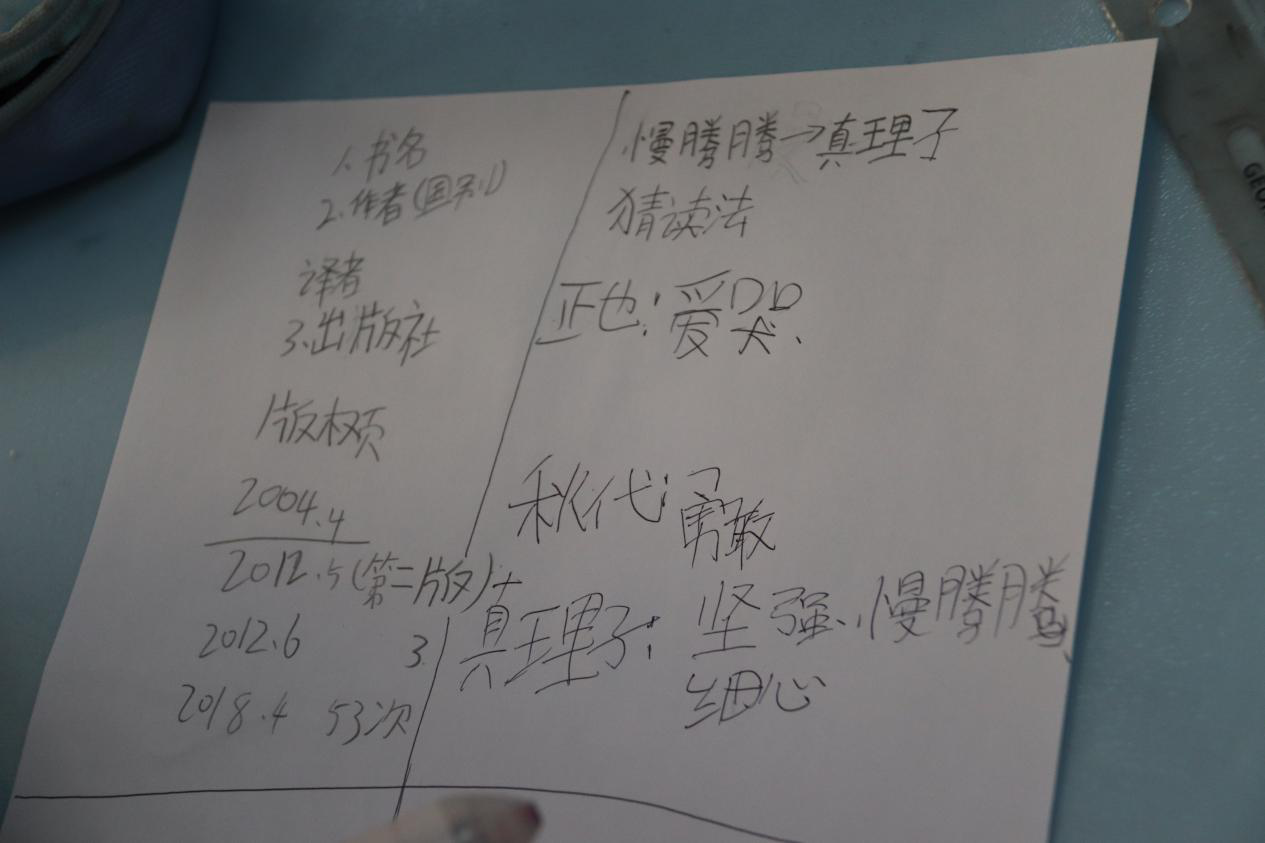 1.书名
2.作者(国别)
译者
3.出版社
版权页
2004.4
2012.5(第二版)+
2012.6 3.
2018.4 53次
慢腾腾→真理子
猜读法
正也:爱哭、
秋代:勇敢
真理子:坚强、慢腾腾、
细心